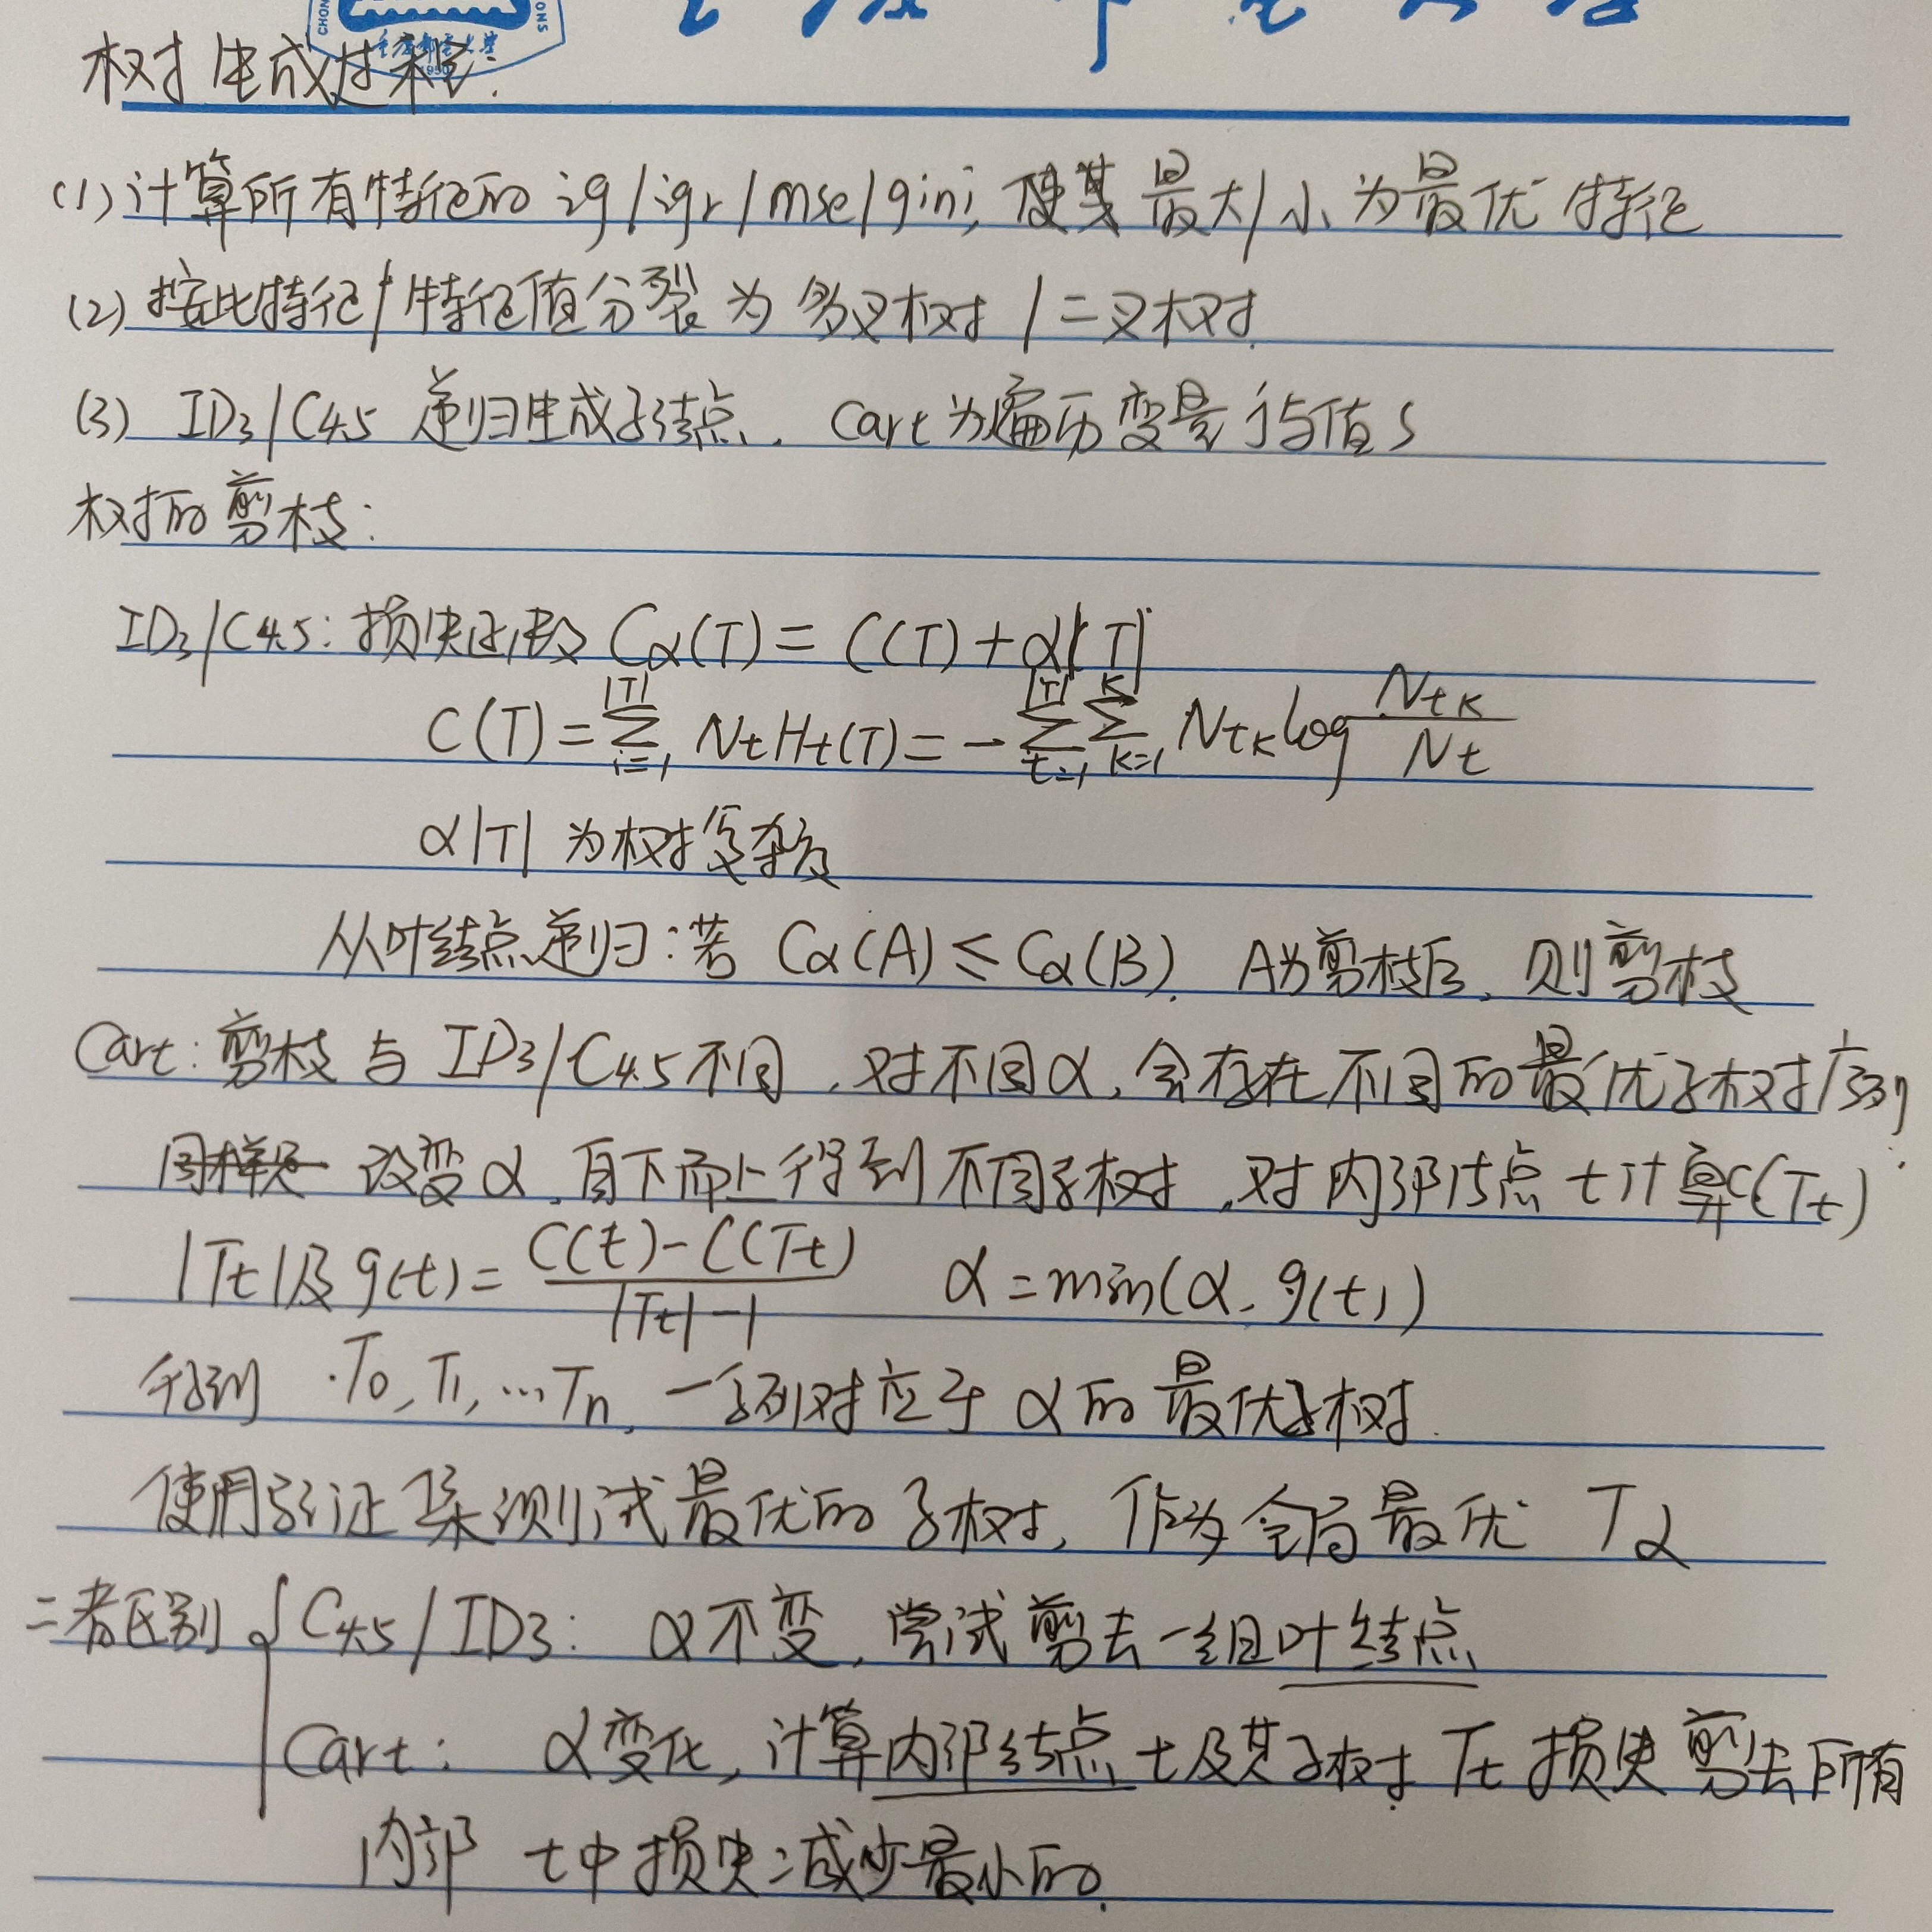 树生成过程:
(1) 计算所有特征的 ig/igr/mse/gini, 使其最大/小为最优特征
(2) 按此特征/特征值分裂为多叉树/二叉树.
(3) ID3/C4.5 递归生成子结点. Cart为遍历变量j与值s
树的剪枝:
ID3/C4.5: 损失函数 Cα(T) = C(T) + α|T|
C(T) = Σ_{i=1}^{|T|} NtHt(T) = - Σ_{t=1}^{|T|} Σ_{k=1}^{K} Ntk log Ntk/Nt
α|T| 为树复杂度
从叶结点递归: 若 Cα(A) ≤ Cα(B), A为剪枝后, 则剪枝
Cart: 剪枝与ID3/C4.5不同, 对不同α, 会存在不同的最优子树序列
改变α, 自下而上得到不同子树, 对内部结点t计算C(Tt)
|Tt|及g(t) = (C(t)-C(Tt))/(|Tt|-1) α = min(α, g(t))
得到 T0, T1, …Tn, 一系列对应于α的最优子树.
使用验证集测试最优的子树, 作为全局最优 Tα
二者区别 { C4.5/ID3: α不变, 尝试剪去一组叶结点
Cart: α变化, 计算内部结点t及其子树Tt损失 剪去所有
内部 t中损失减少最小的.
CHON
重庆邮电大学
1950
ONS